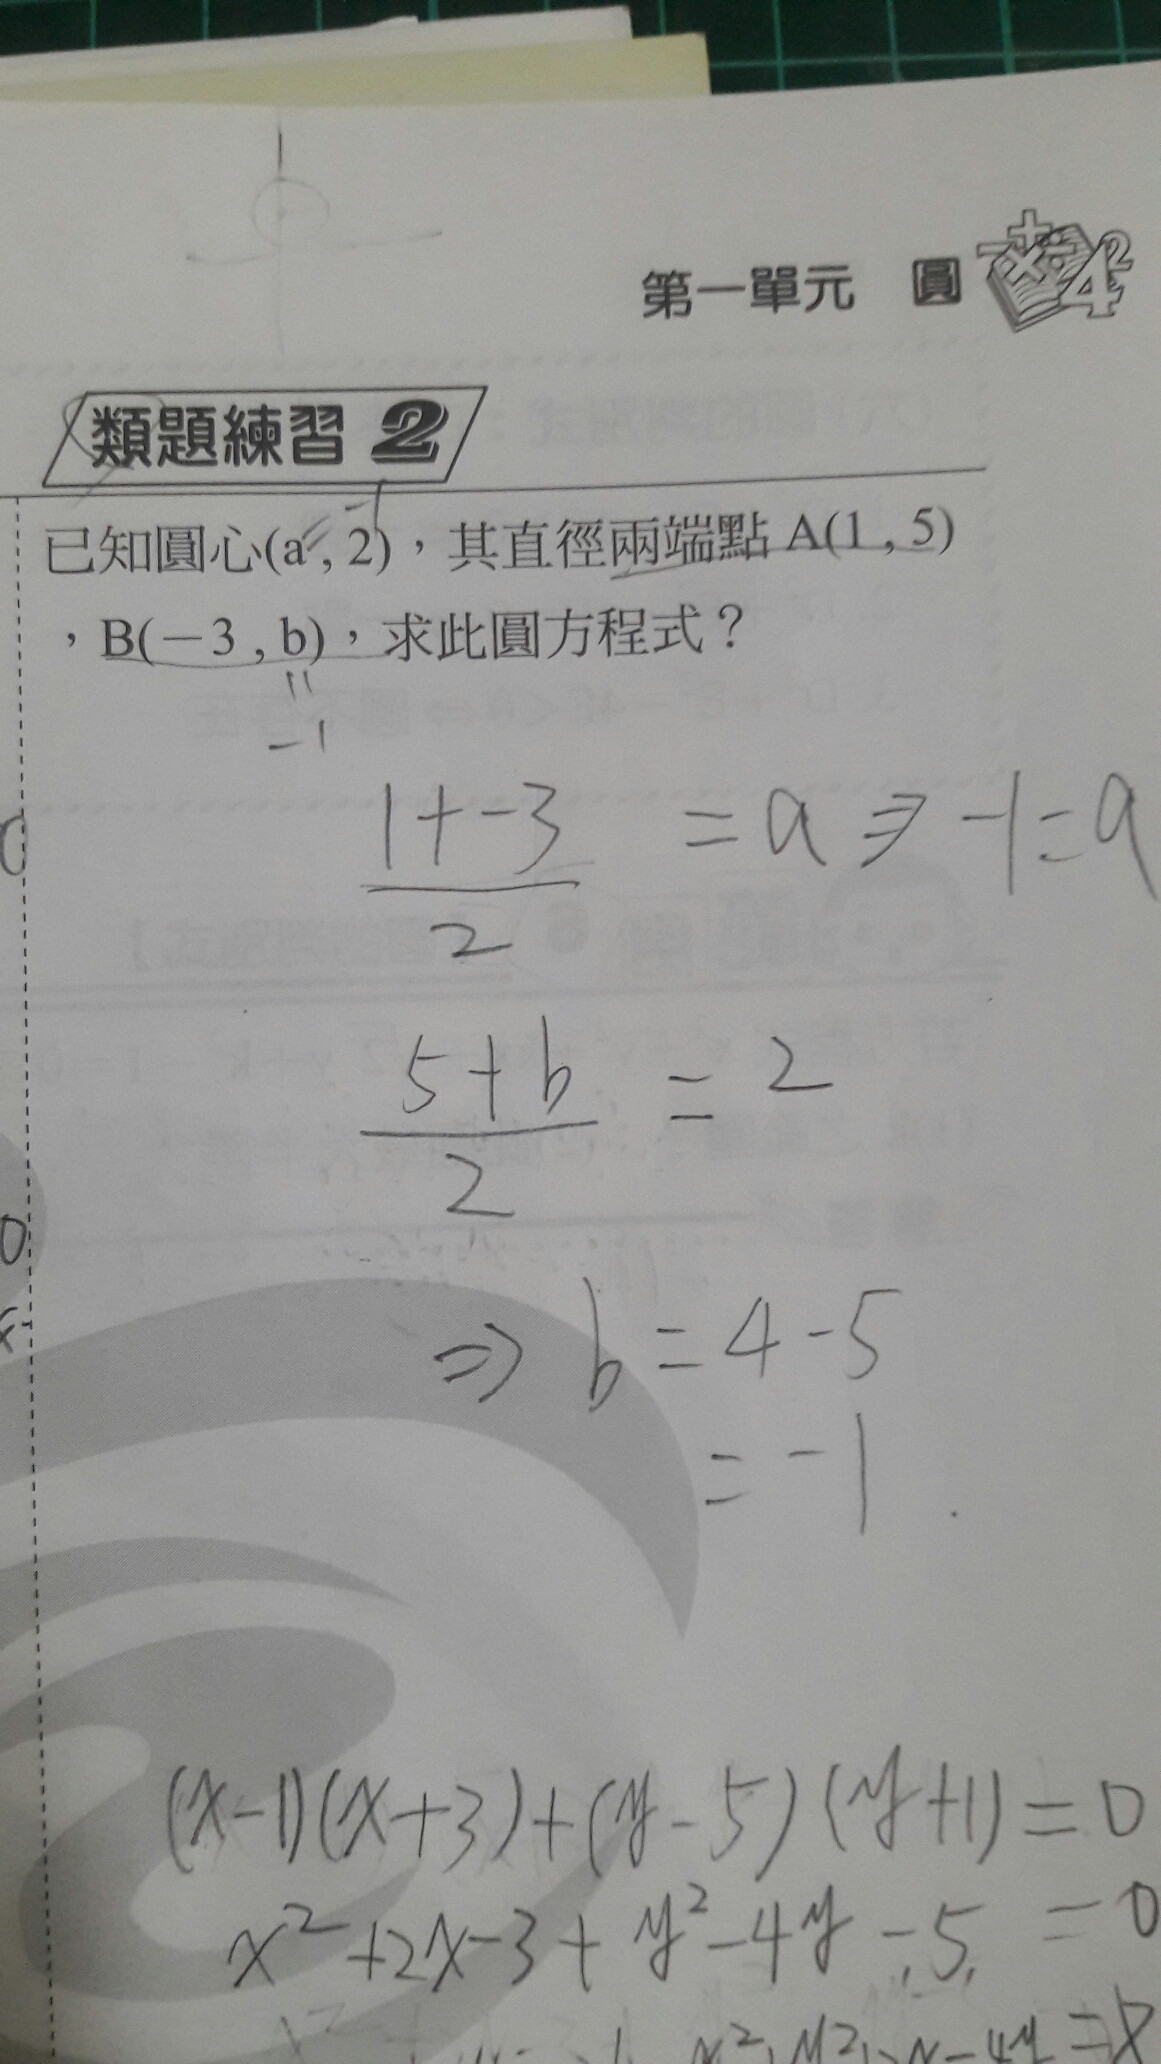 第一單元 圓
類題練習 2
-1
已知圓心(a , 2),其直徑兩端點 A(1 , 5)
,B(-3 , b),求此圓方程式?
-1
1+-3 = a ⇒ -1 = a
2
5+b = 2
2
⇒ b = 4-5
= -1
(x-1)(x+3)+(y-5)(y+1)=0
x²+2x-3+y²-4y-5=0